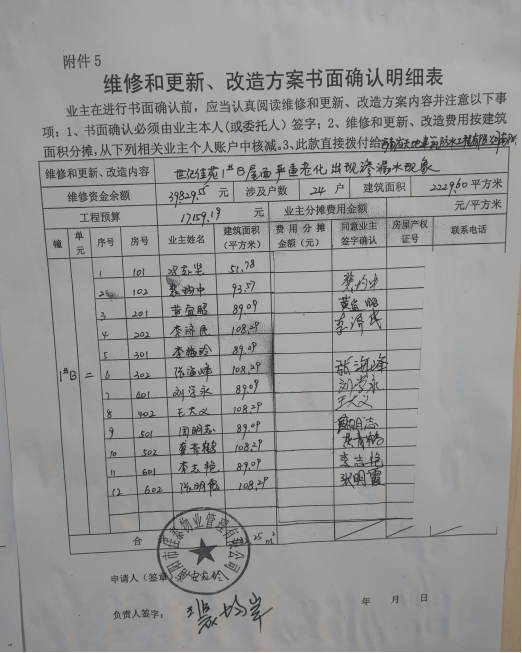 附件5
维修和更新、改造方案书面确认明细表
业主在进行书面确认前，应当认真阅读维修和更新、改造方案内容并注意以下事
项：1、书面确认必须由业主本人(或委托人)签字；2、维修和更新、改造费用按建筑
面积分摊，从下列相关业主个人账户中核减。3、此款直接拨付给
维修和更新、改造内容 世纪佳苑1#B屋面严重老化出现渗漏水现象
维修资金余额 39829.55 元 涉及户数 24户 建筑面积 2229.60平方米
工程预算 17159.19 元 业主分摊费用金额 元/平方米
幢 单元 序号 房号 业主姓名 建筑面积（平方米） 费用分摊金额（元） 同意业主签字确认 房屋产权证号 联系电话
1#B 二
1 101 51.78
2 102 93.57
3 201 89.09
4 202 李济民 108.29 李济民
5 301 89.09
6 302 108.29 张海峰
7 401 刘学永 89.09 刘学永
8 402 王大义 108.29 王大义
9 501 周明志 89.09 周明志
10 502 108.29
11 601 李志艳 89.09 李志艳
12 602 张明霞 108.29 张明霞
合 25 m²
申请人（签章）
负责人签字：
年 月 日